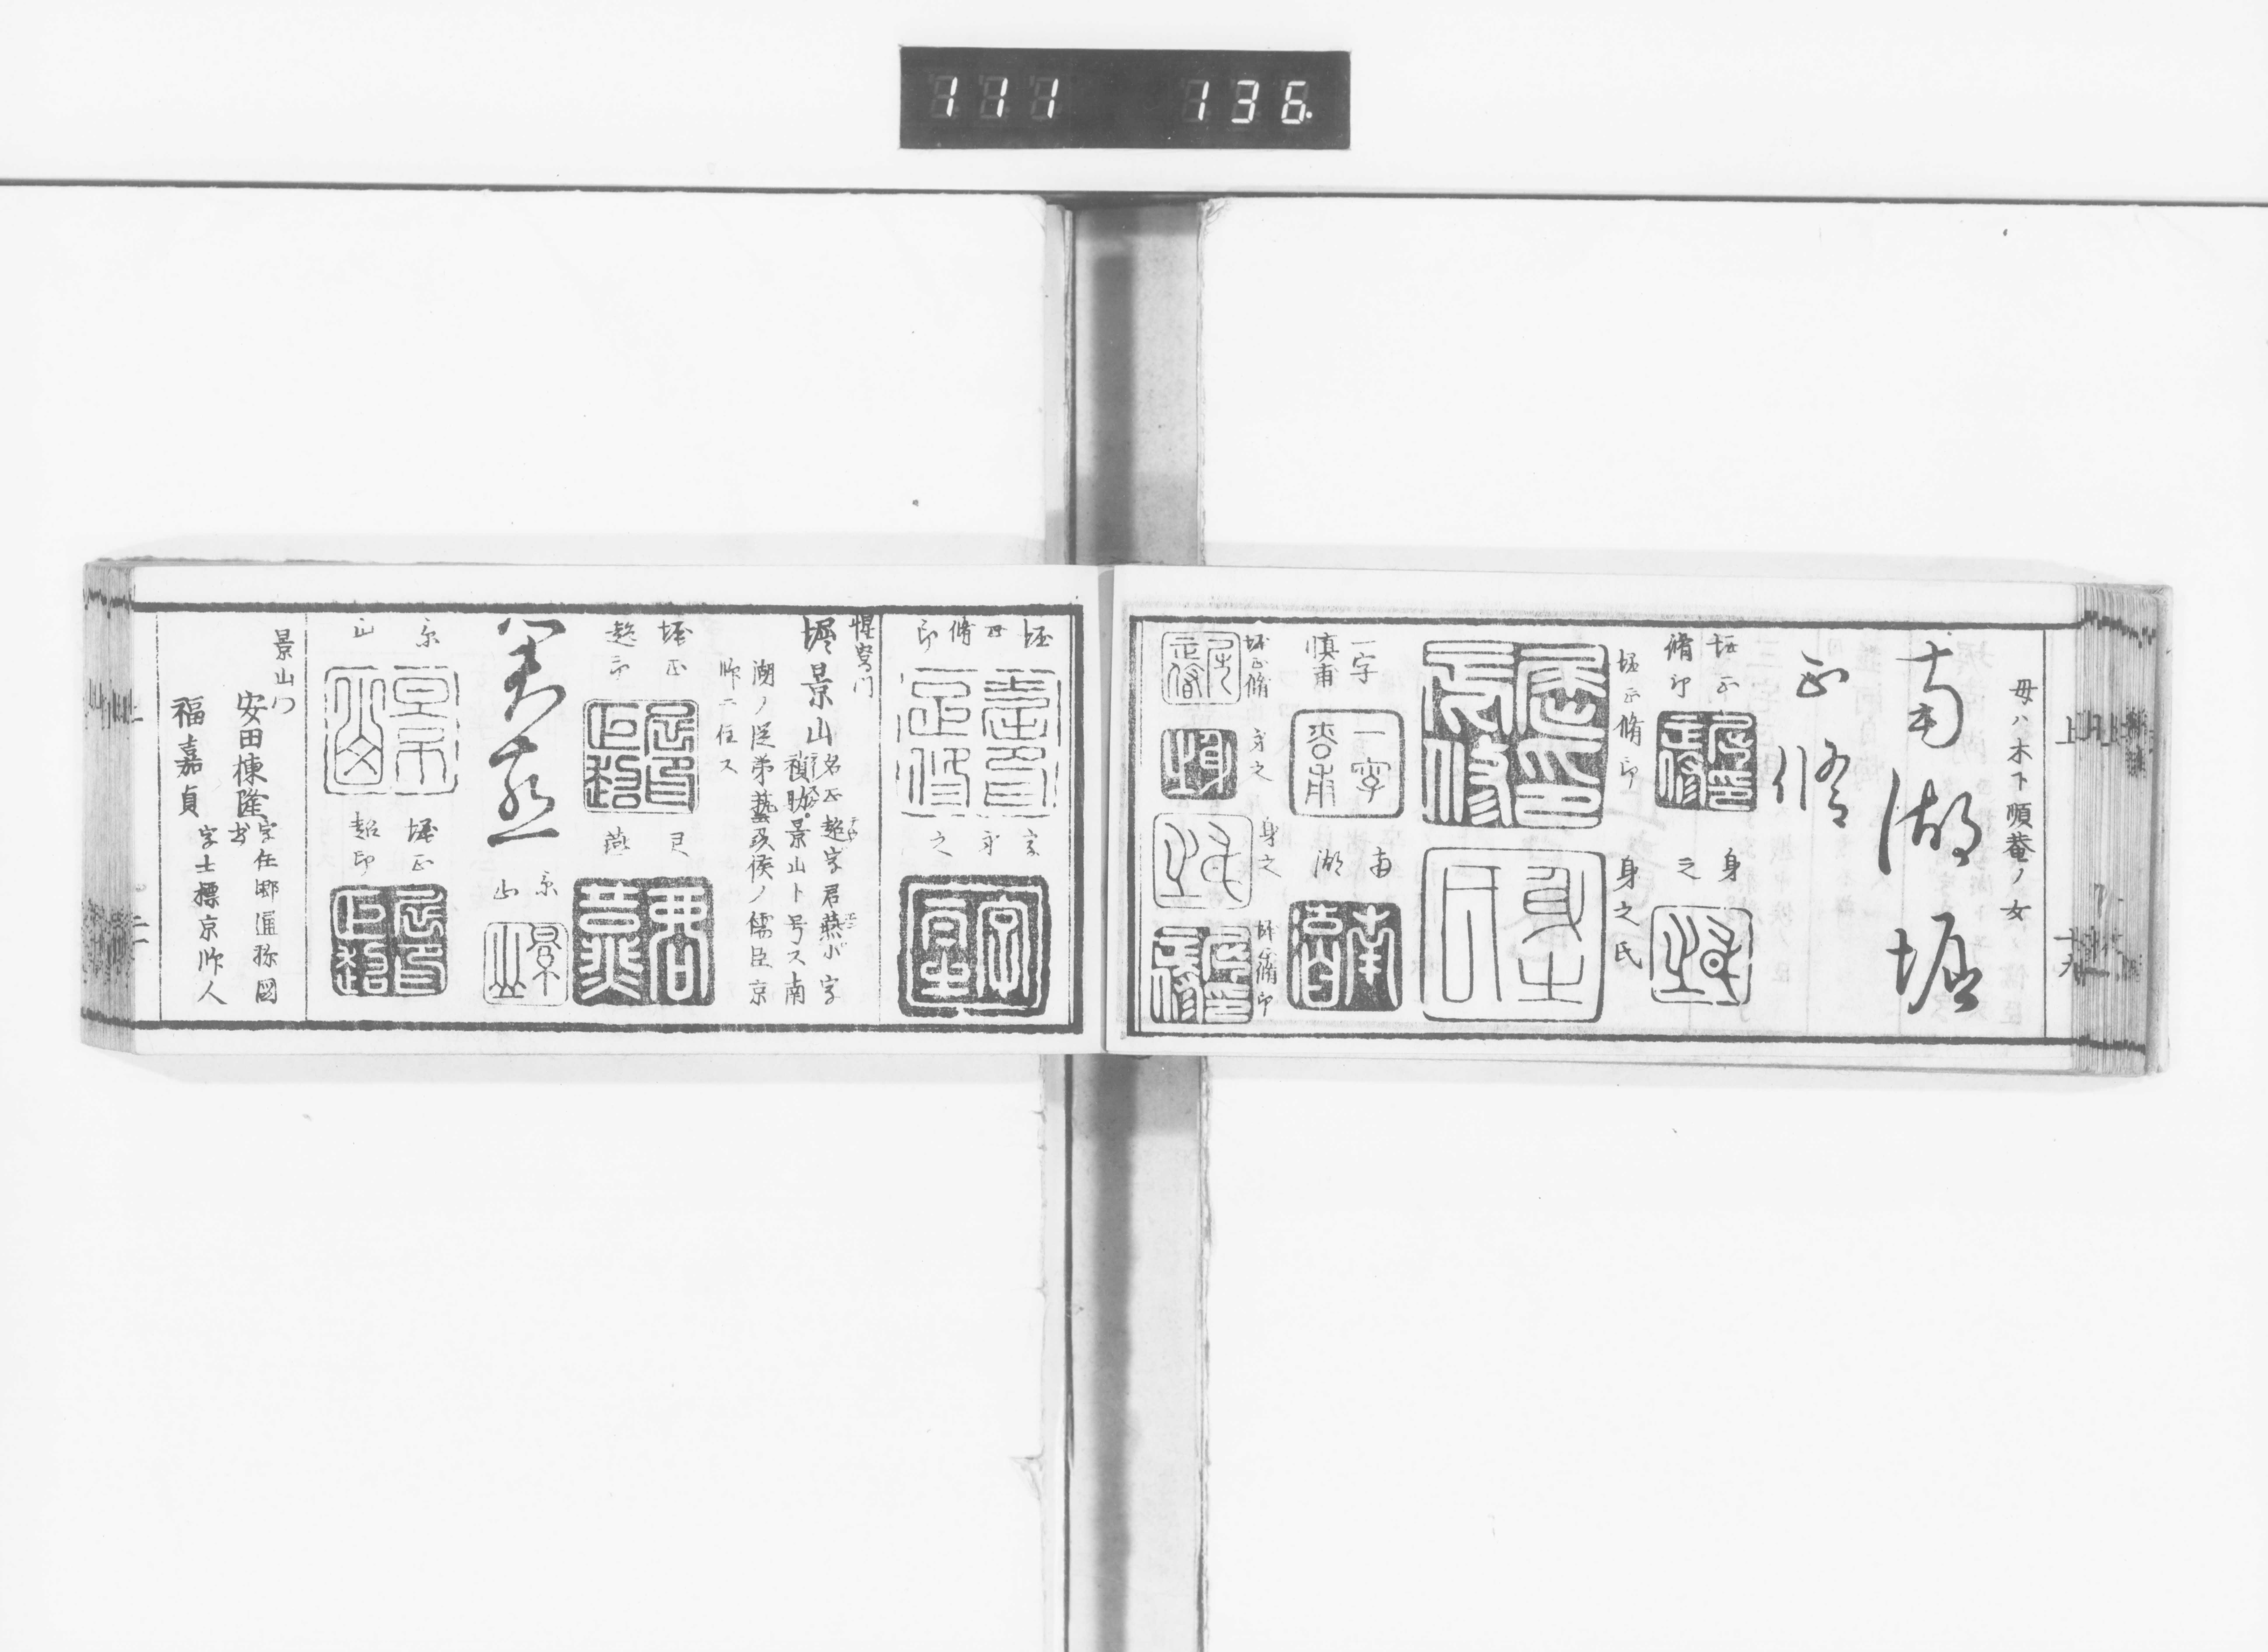 111 136.
母ハ木下順菴ノ女
南湖堀
正脩
堀正
脩印
身
之
堀正脩印
身之氏
一字
慎甫
南
湖
堀正脩
身之
身之
堀正脩印
堀
正
脩
印
字
身
之
惺窩門
堀景山
名正超字君燕小字
禎助景山ト号ス南
湖ノ従弟藝州侯ノ儒臣京
師ニ住ス
堀正
超印
君
燕
君燕
景
山
景
山
堀正
超印
景山門
安田棟隆
福嘉貞
字士標京師人
上
十九